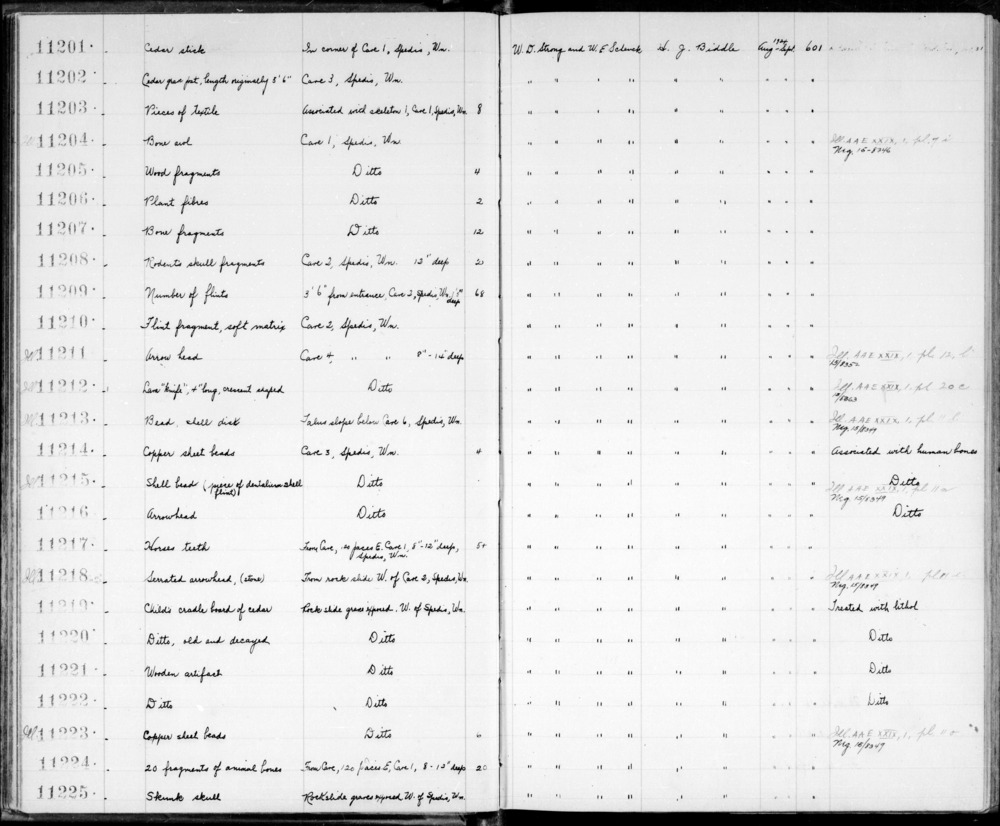 11201. Cedar stick In corner of Cave 1, Spedis, Wn. W. D. Strong and W. E. Schenck H. J. Biddle Aug-Sept. 1924 601
11202. Cedar grave post, length originally 5' 6" Cave 3, Spedis, Wn. " " " " " " " "
11203. Pieces of textile Associated with skeleton 1, Cave 1, Spedis, Wn 8 " " " " " " " "
11204. Bone awl Cave 1, Spedis, Wn " " " " " " " " Ill. AAE XXIX, 1, pl. 9
Neg. 15-8346
11205. Wood fragments Ditto 4 " " " " " " " "
11206. Plant fibres Ditto 2 " " " " " " " "
11207. Bone fragments Ditto 12 " " " " " " " "
11208. Rodents skull fragments Cave 2, Spedis, Wn. 12" deep 2 " " " " " " " "
11209. Number of flints 3' 6" from entrance, Cave 2, Spedis, Wn. deep 68 " " " " " " " "
11210. Flint fragment, soft matrix Cave 2, Spedis, Wn. " " " " " " " "
Ill 11211 Arrow head Cave 4, " " 8" - 12" deep " " " " " " " " Ill. AAE XXIX, 1 pl. 12, b
15/8352
Ill 11212. Lava "knife", 4" long, crescent shaped Ditto " " " " " " " " Ill. AAE XXIX, 1, pl. 20 c
Ill 11213. Bead, shell disk Talus slope below Cave 6, Spedis, Wn. " " " " " " " " Ill. AAE XXIX, 1, pl. 11
Neg. 15/8349
11214. Copper sheet beads Cave 3, Spedis, Wn. 4 " " " " " " " " Associated with human bones
Ill 11215. Shell bead (piece of dentalium shell flint) Ditto " " " " " " " " Ditto
Ill AAE XXIX, 1, pl. 11
Neg 15/8349
11216 Arrowhead Ditto " " " " " " " " Ditto
11217. Horses teeth From Cave, 20 paces E. Cave 1, 8"-12" deep, Spedis, Wn. 5+ " " " " " " " "
Ill 11218. Serrated arrowhead, (stone) From rock slide W. of Cave 2, Spedis, Wn " " " " " " " " Ill AAE XXIX, 1, pl
Neg. 15/8349
11219. Child's cradle board of cedar Rock slide graves exposed. W. of Spedis, Wn. " " " " " " " " Treated with lithol
11220 Ditto, old and decayed Ditto " " " " " " " " Ditto
11221. Wooden artifact Ditto " " " " " " " " Ditto
11222. Ditto Ditto " " " " " " " " Ditto
Ill 11223. Copper sheet beads Ditto 6 " " " " " " " " Ill. AAE XXIX, 1, pl 11
Neg 15/8349
11224. 20 fragments of animal bones From Cave, 120 paces E, Cave 1, 8 - 12" deep 20 " " " " " " " "
11225. Skunk skull Rockslide graves exposed, W. of Spedis, Wn. " " " " " " " "